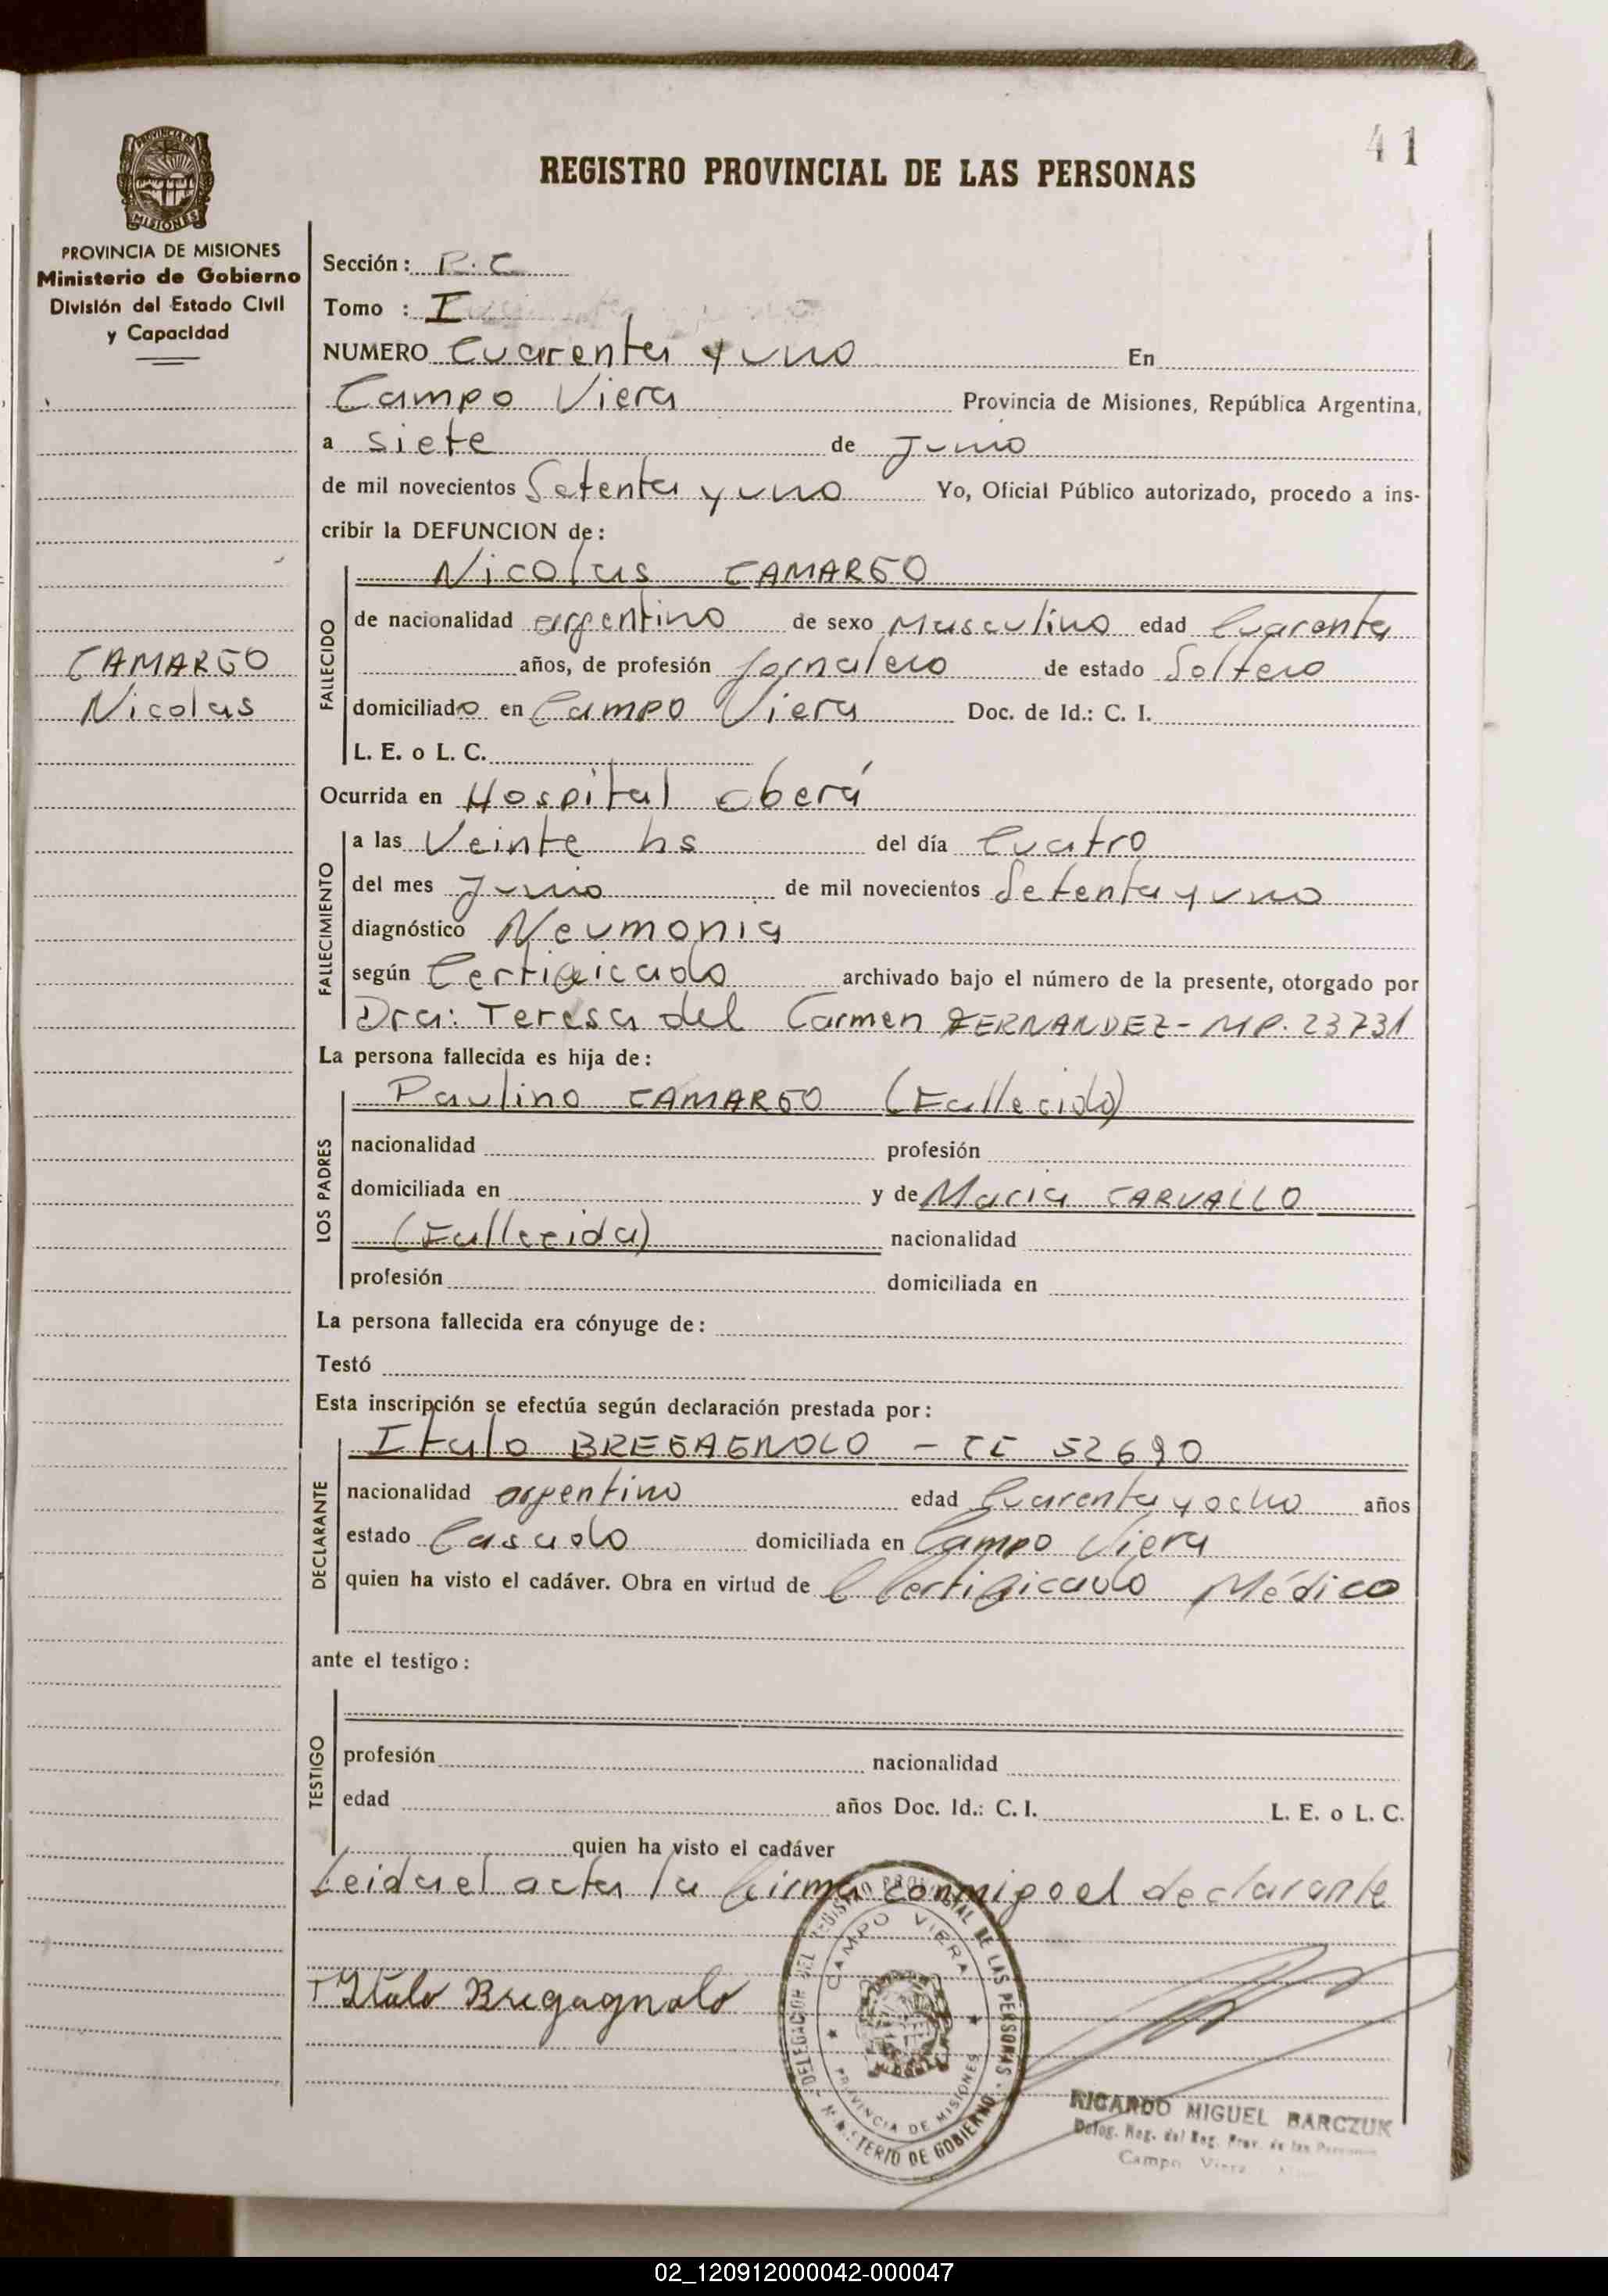 41
REGISTRO PROVINCIAL DE LAS PERSONAS
PROVINCIA DE
MISIONES
PROVINCIA DE MISIONES
Ministerio de Gobierno
División del Estado Civil
y Capacidad
CAMARGO
Nicolas
Sección: R.C
Tomo : I
NUMERO Cuarenta y uno En
Campo Viera Provincia de Misiones, República Argentina,
a siete de Junio
de mil novecientos Setenta y uno Yo, Oficial Público autorizado, procedo a ins-
cribir la DEFUNCION de:
FALLECIDO
Nicolas CAMARGO
de nacionalidad argentino de sexo Masculino edad Cuarenta
años, de profesión Jornalero de estado Soltero
domiciliado en Campo Viera Doc. de Id.: C. I.
L. E. o L. C.
Ocurrida en Hospital Oberá
FALLECIMIENTO
a las Veinte hs del día Cuatro
del mes Junio de mil novecientos Setenta y uno
diagnóstico Neumonia
según Certificado archivado bajo el número de la presente, otorgado por
Dra: Teresa del Carmen FERNANDEZ - MP. 23731
La persona fallecida es hija de:
LOS PADRES
Paulino CAMARGO (Fallecido)
nacionalidad profesión
domiciliada en y de Maria CARVALLO
(Fallecida) nacionalidad
profesión domiciliada en
La persona fallecida era cónyuge de:
Testó
Esta inscripción se efectúa según declaración prestada por:
DECLARANTE
Italo BREGAGNOLO - CI 52690
nacionalidad argentino edad Cuarenta y ocho años
estado Casado domiciliada en Campo Viera
quien ha visto el cadáver. Obra en virtud de Certificado Médico
ante el testigo:
TESTIGO
profesión nacionalidad
edad años Doc. Id.: C. I. L. E. o L. C.
quien ha visto el cadáver
Leida el acta la firma conmigo el declarante
Italo Bregagnolo
DELEGACION DEL REGISTRO PROVINCIAL DE LAS PERSONAS
MINISTERIO DE GOBIERNO
CAMPO VIERA
PROVINCIA DE MISIONES
RICARDO MIGUEL BARCZUK
Deleg. Reg. del Reg. Prov. de las Personas
Campo Viera
02_120912000042-000047